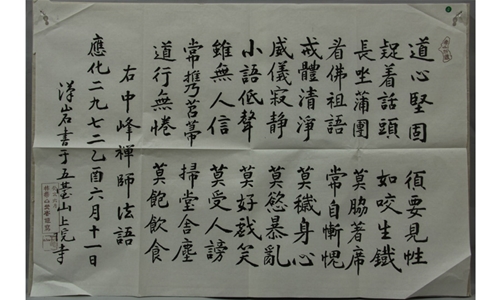 道心堅固 須要見性
捉着話頭 如咬生鐵
長坐蒲團 莫脇著席
看佛祖語 常自慚愧
戒體清淨 莫穢身心
威儀寂静 莫慾暴亂
小語低聲 莫好戱笑
雖無人信 莫受人謗
常携苕菷 掃堂舍塵
道行無惓 莫飽飲食
右中峰禪師法語
應化二九七二乙酉六月十一日
漢岩書于五臺山上院寺